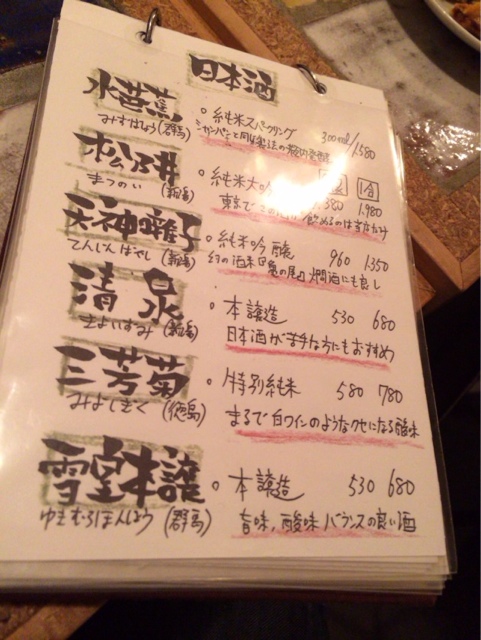 日本酒
水芭蕉 ○ 純米スパークリング 300ml/1,580
みずばしょう (群馬) シャンパンと同じ製法の瓶内発酵
松乃井 ○ 純米大吟 1合
まつのい (新潟) 380 1,980
東京で 飲めるのは
天神囃子 ○ 純米吟醸 960 1,350
てんじんばやし (新潟) 幻の酒米『亀の尾』燗酒にも良し
清泉 ○ 本醸造 530 680
きよいずみ (新潟) 日本酒が苦手な方にもおすすめ
三芳菊 ○ 特別純米 580 780
みよしきく (徳島) まるで白ワインのようなクセになる酸味
雪室本譲 ○ 本醸造 530 680
ゆきむろほんじょう (群馬) 旨味、酸味バランスの良い酒